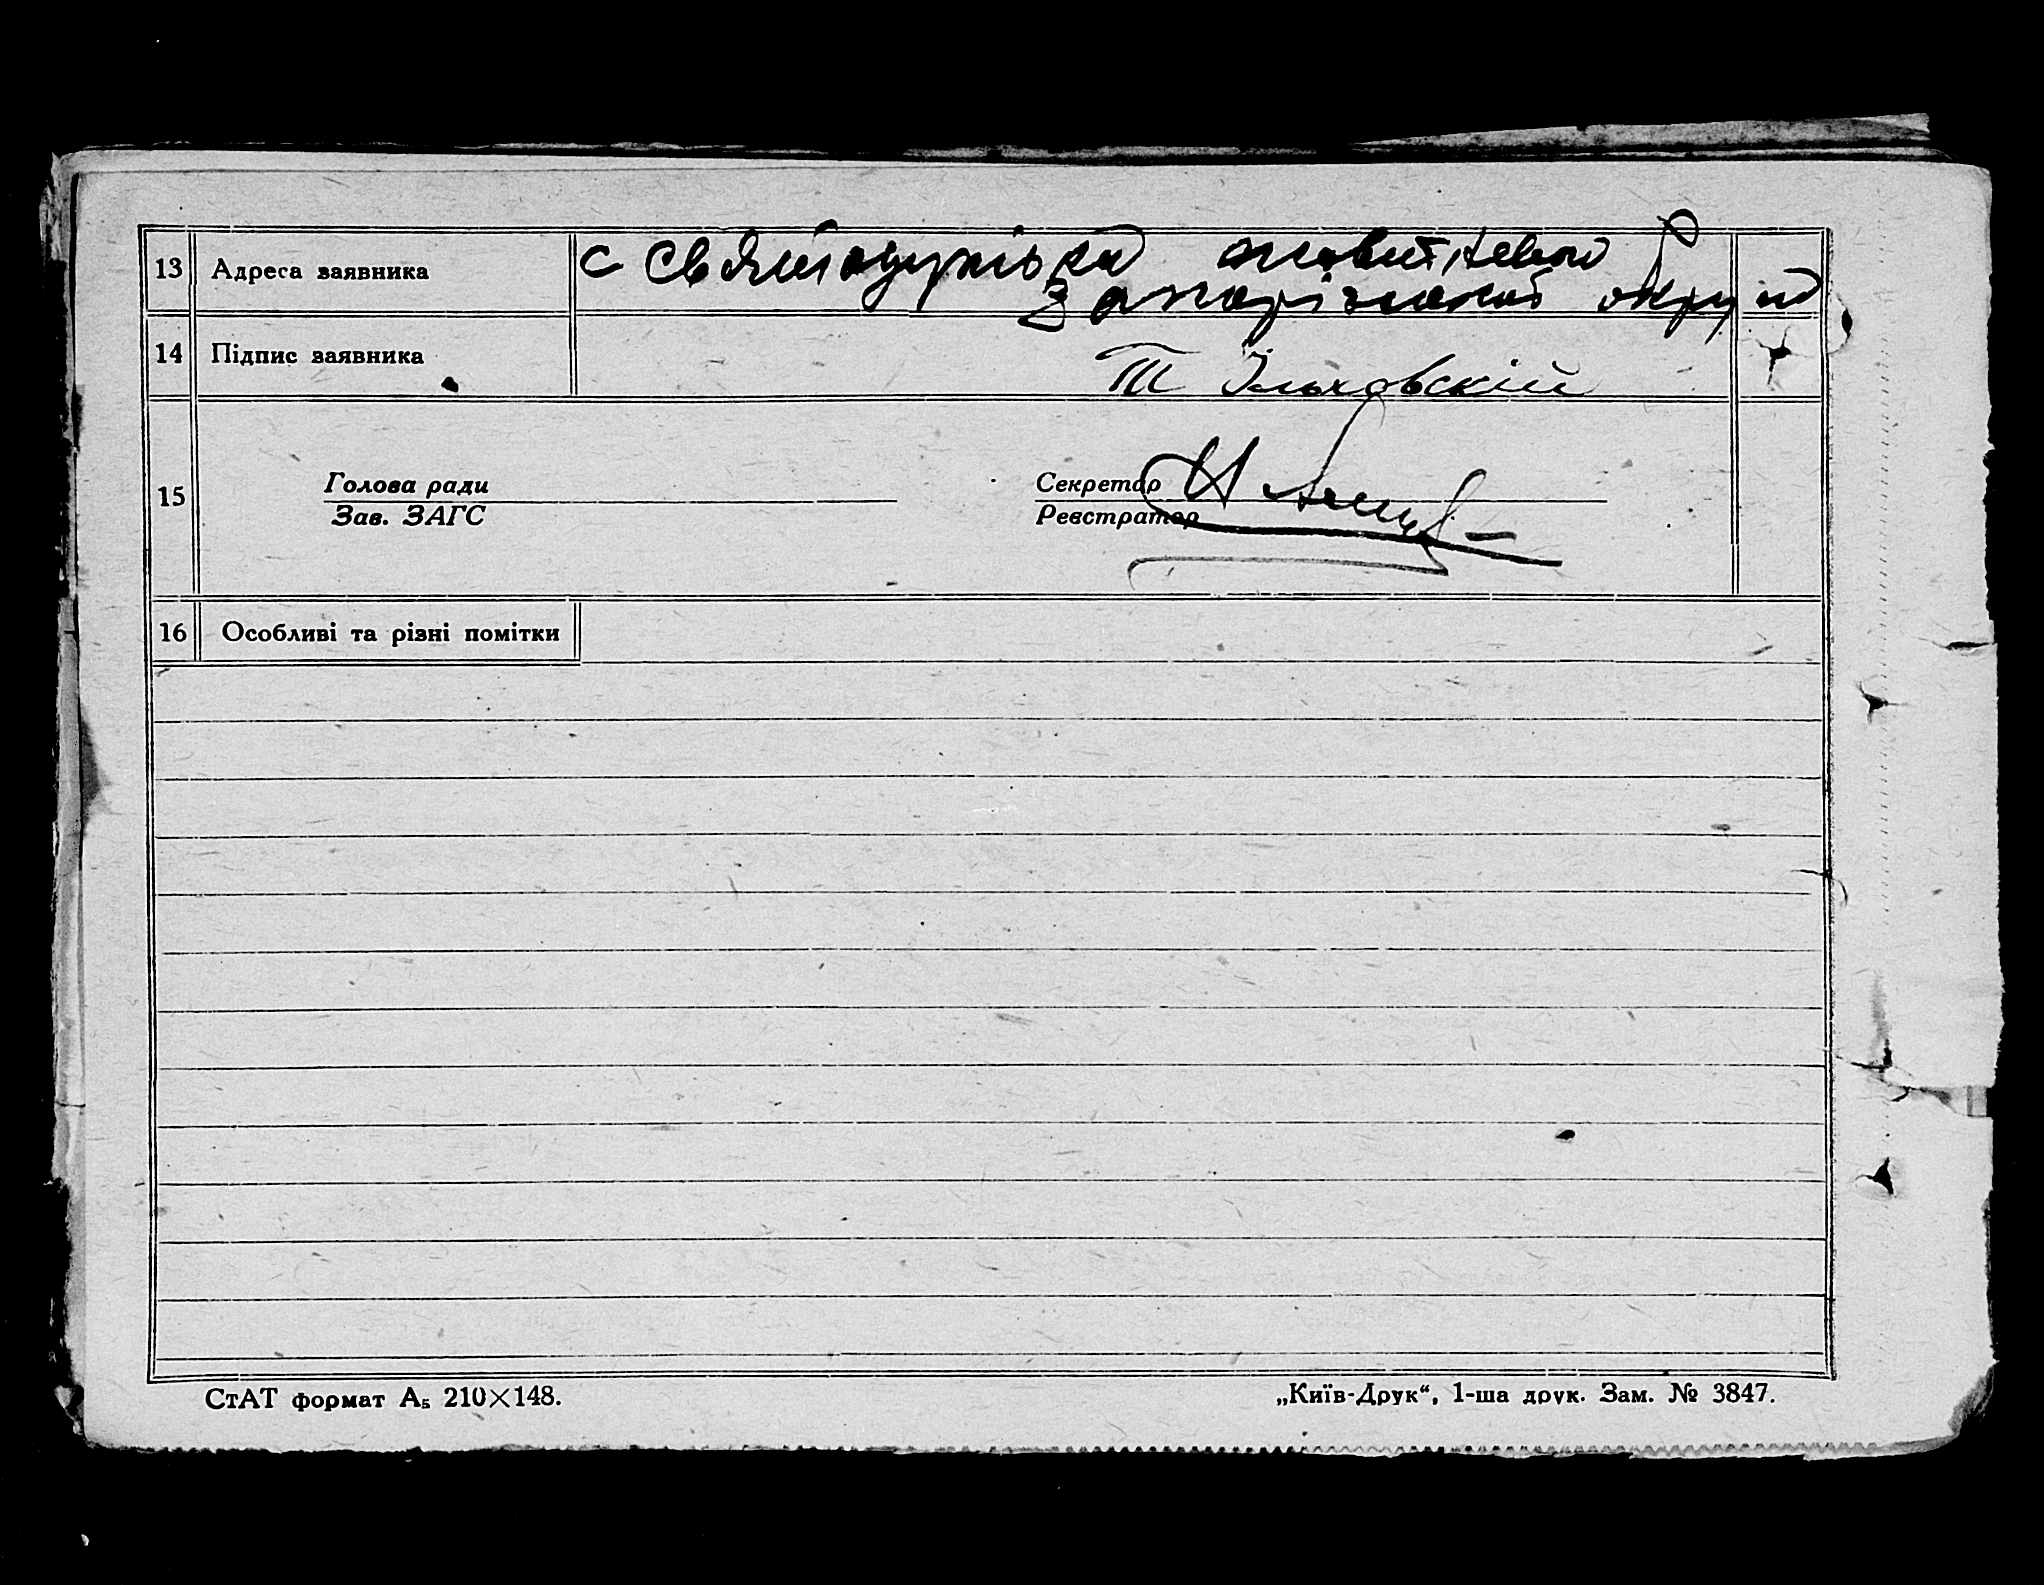 13 Адреса заявника с Святодухівка Жовтневого Р
Запорізької округи
14 Підпис заявника Т Ільховскій
15 Голова ради Секретар
Зав. ЗАГС Реєстратор
16 Особливі та різні помітки
СтАТ формат А₅ 210×148. „Київ-Друк“, 1-ша друк. Зам. № 3847.